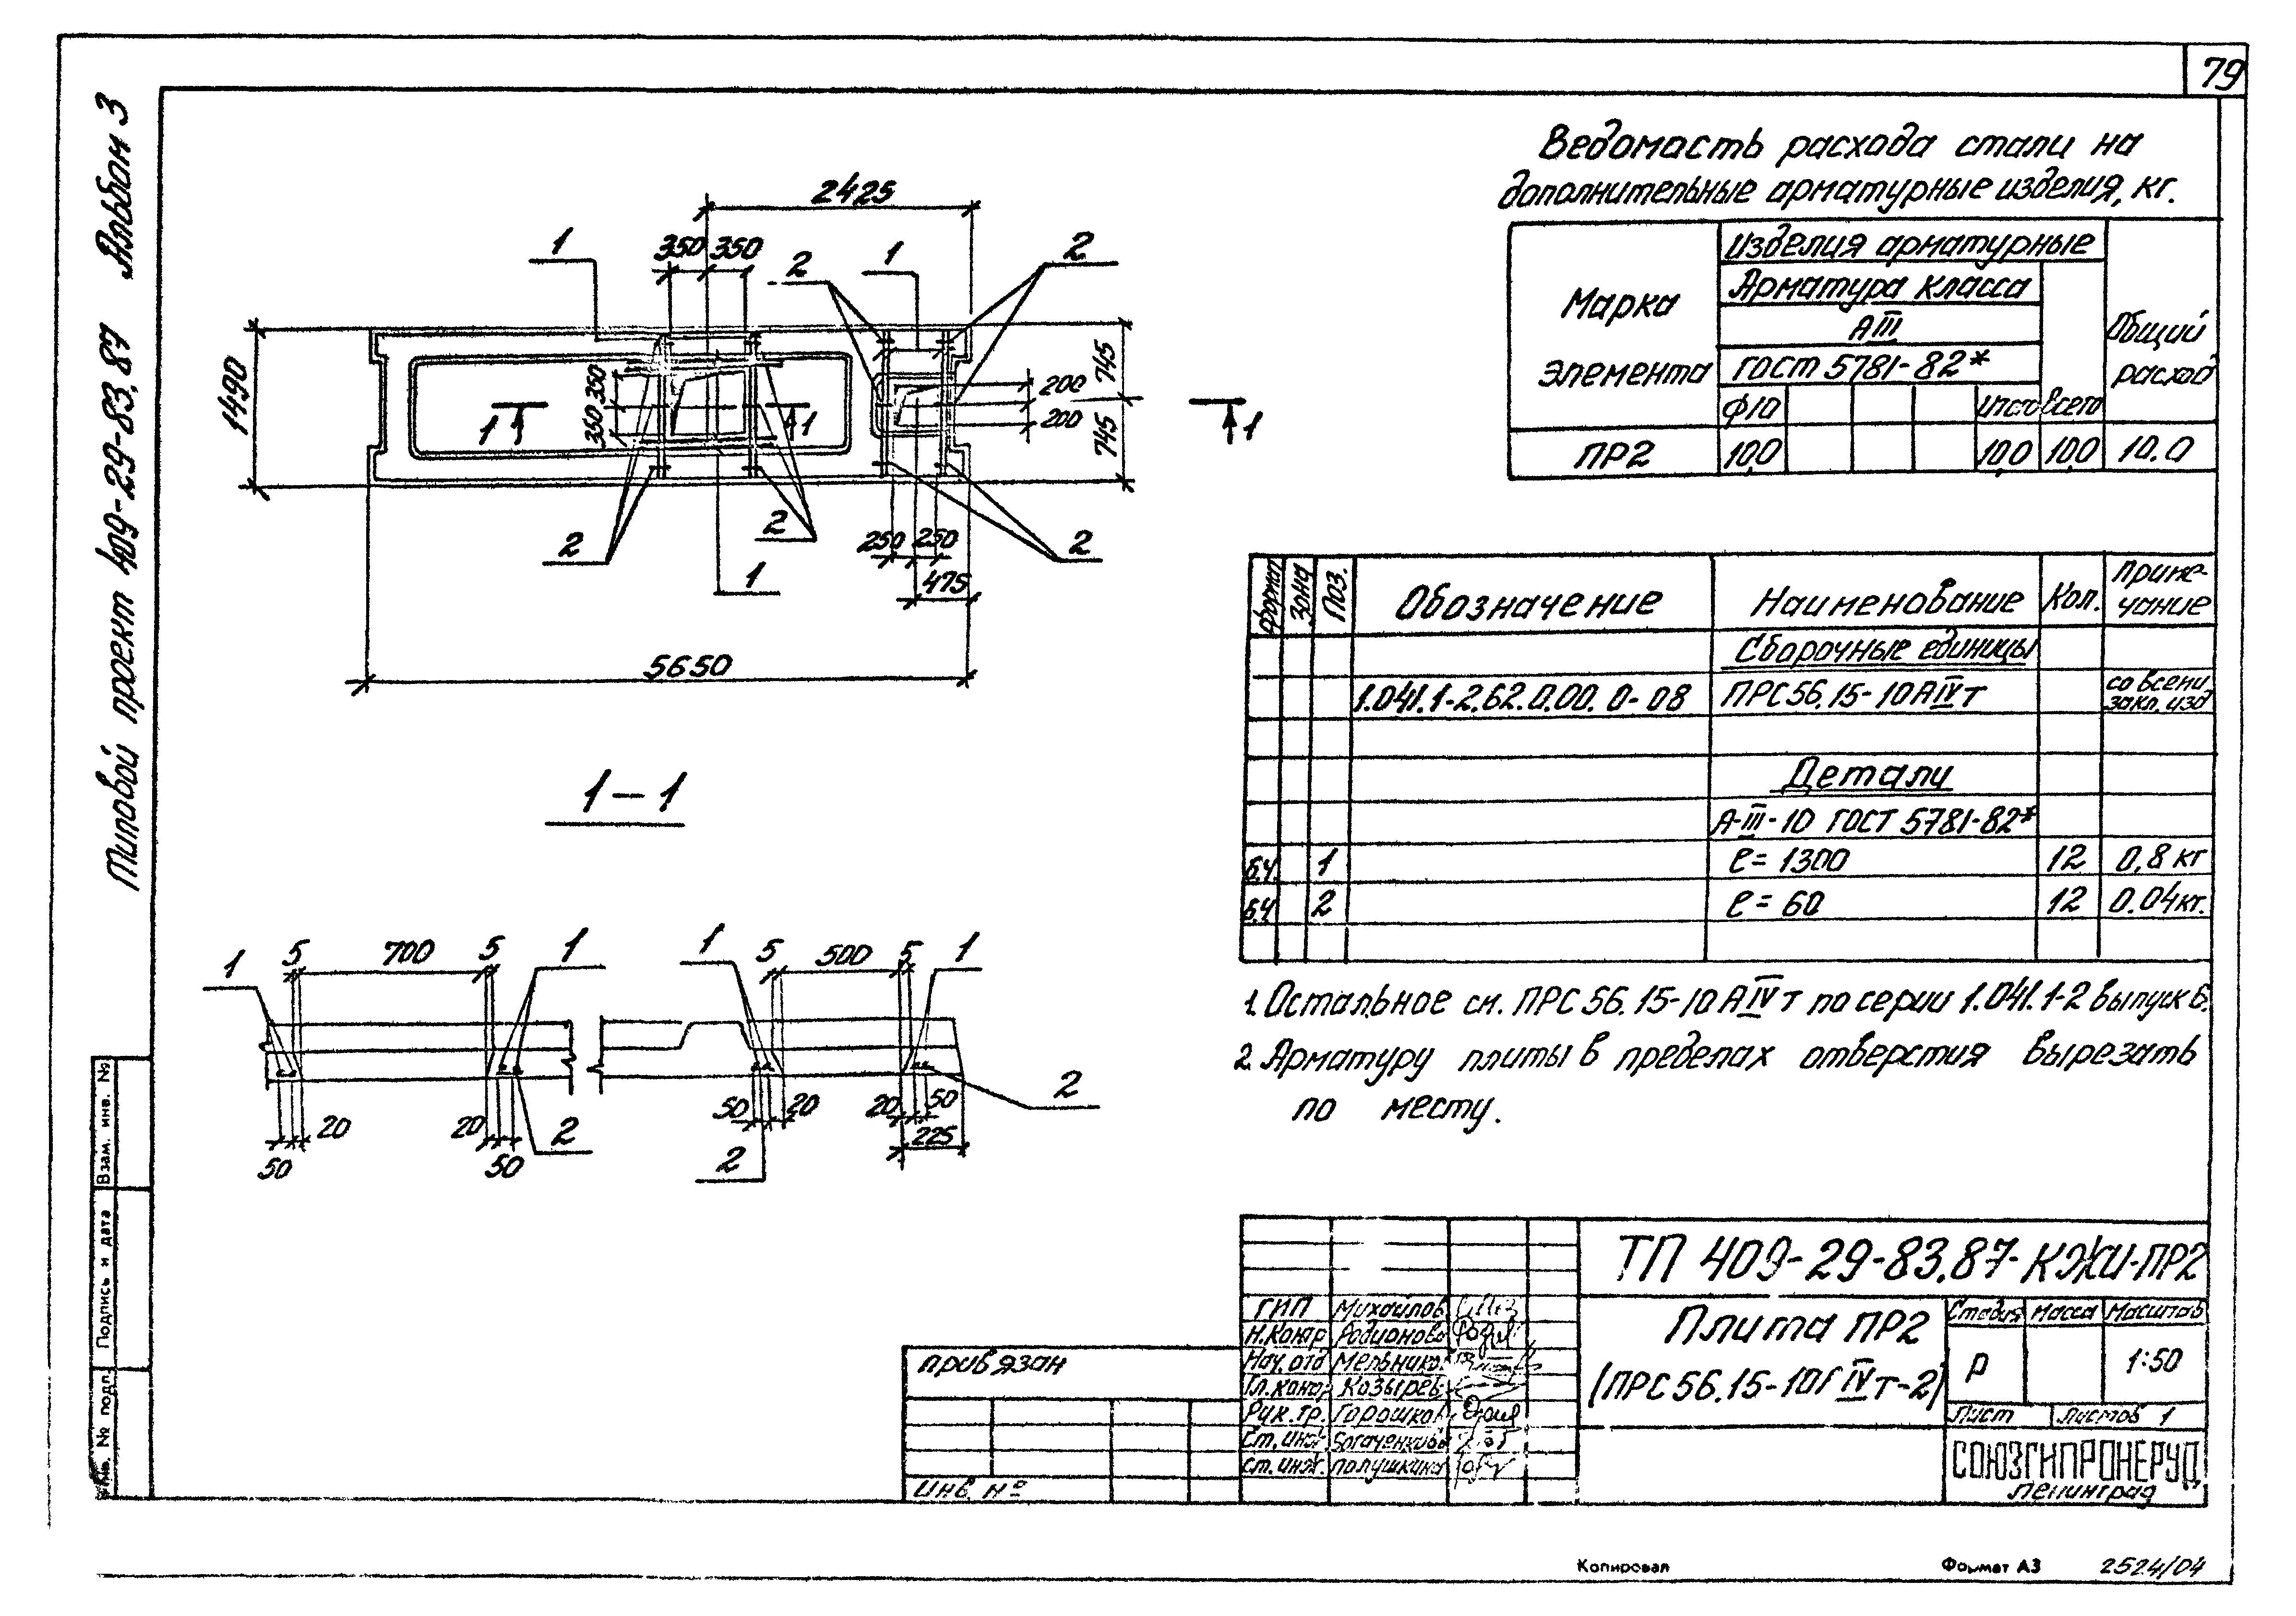 79
Типовой проект 409-29-83.87 Альбом 3
Ведомость расхода стали на
дополнительные арматурные изделия, кг.
Марка элемента
Изделия арматурные
Арматура класса
АIII
ГОСТ 5781-82*
Общий расход
Ф10 Итого Всего
ПР2 10,0 10,0 10,0 10.0
2425
350 350
1 2 1 2
1490
350
350
1 1 1
200
200
745
745
2 2 2
250 250
475
1
5650
1-1
1 5 700 5 1
1 5 500 5 1
20 20 2
50 50
50 20 20 50 2
225
2
Формат Зона Поз. Обозначение Наименование Кол. Примечание
Сборочные единицы
1.041.1-2.62.0.00.0-08 ПРС56.15-10АIVт со всеми закл. изд
Детали
А-III-10 ГОСТ 5781-82*
б.ч. 1 ℓ=1300 12 0,8 кг
б.ч 2 ℓ=60 12 0.04кг.
1. Остальное см. ПРС56.15-10АIVт по серии 1.041.1-2 выпуск 6.
2. Арматуру плиты в пределах отверстия вырезать
по месту.
ТП 409-29-83.87-КЖИ-ПР2
ГИП Михайлов
Н.контр Родионова
Нач.отд Мельников
Гл.констр Козырев
Рук.гр. Горошко
Ст.инж Богаченкова
Ст.инж. Полушкина
Плита ПР2
(ПРС56.15-10АIVт-2)
Стадия Масса Масштаб
Р 1:50
Лист Листов 1
СОЮЗГИПРОНЕРУД
Ленинград
Привязан
Инв. №
Взам. инв. №
Подпись и дата
Инв. № подл.
Копировал Формат А3 2524/04